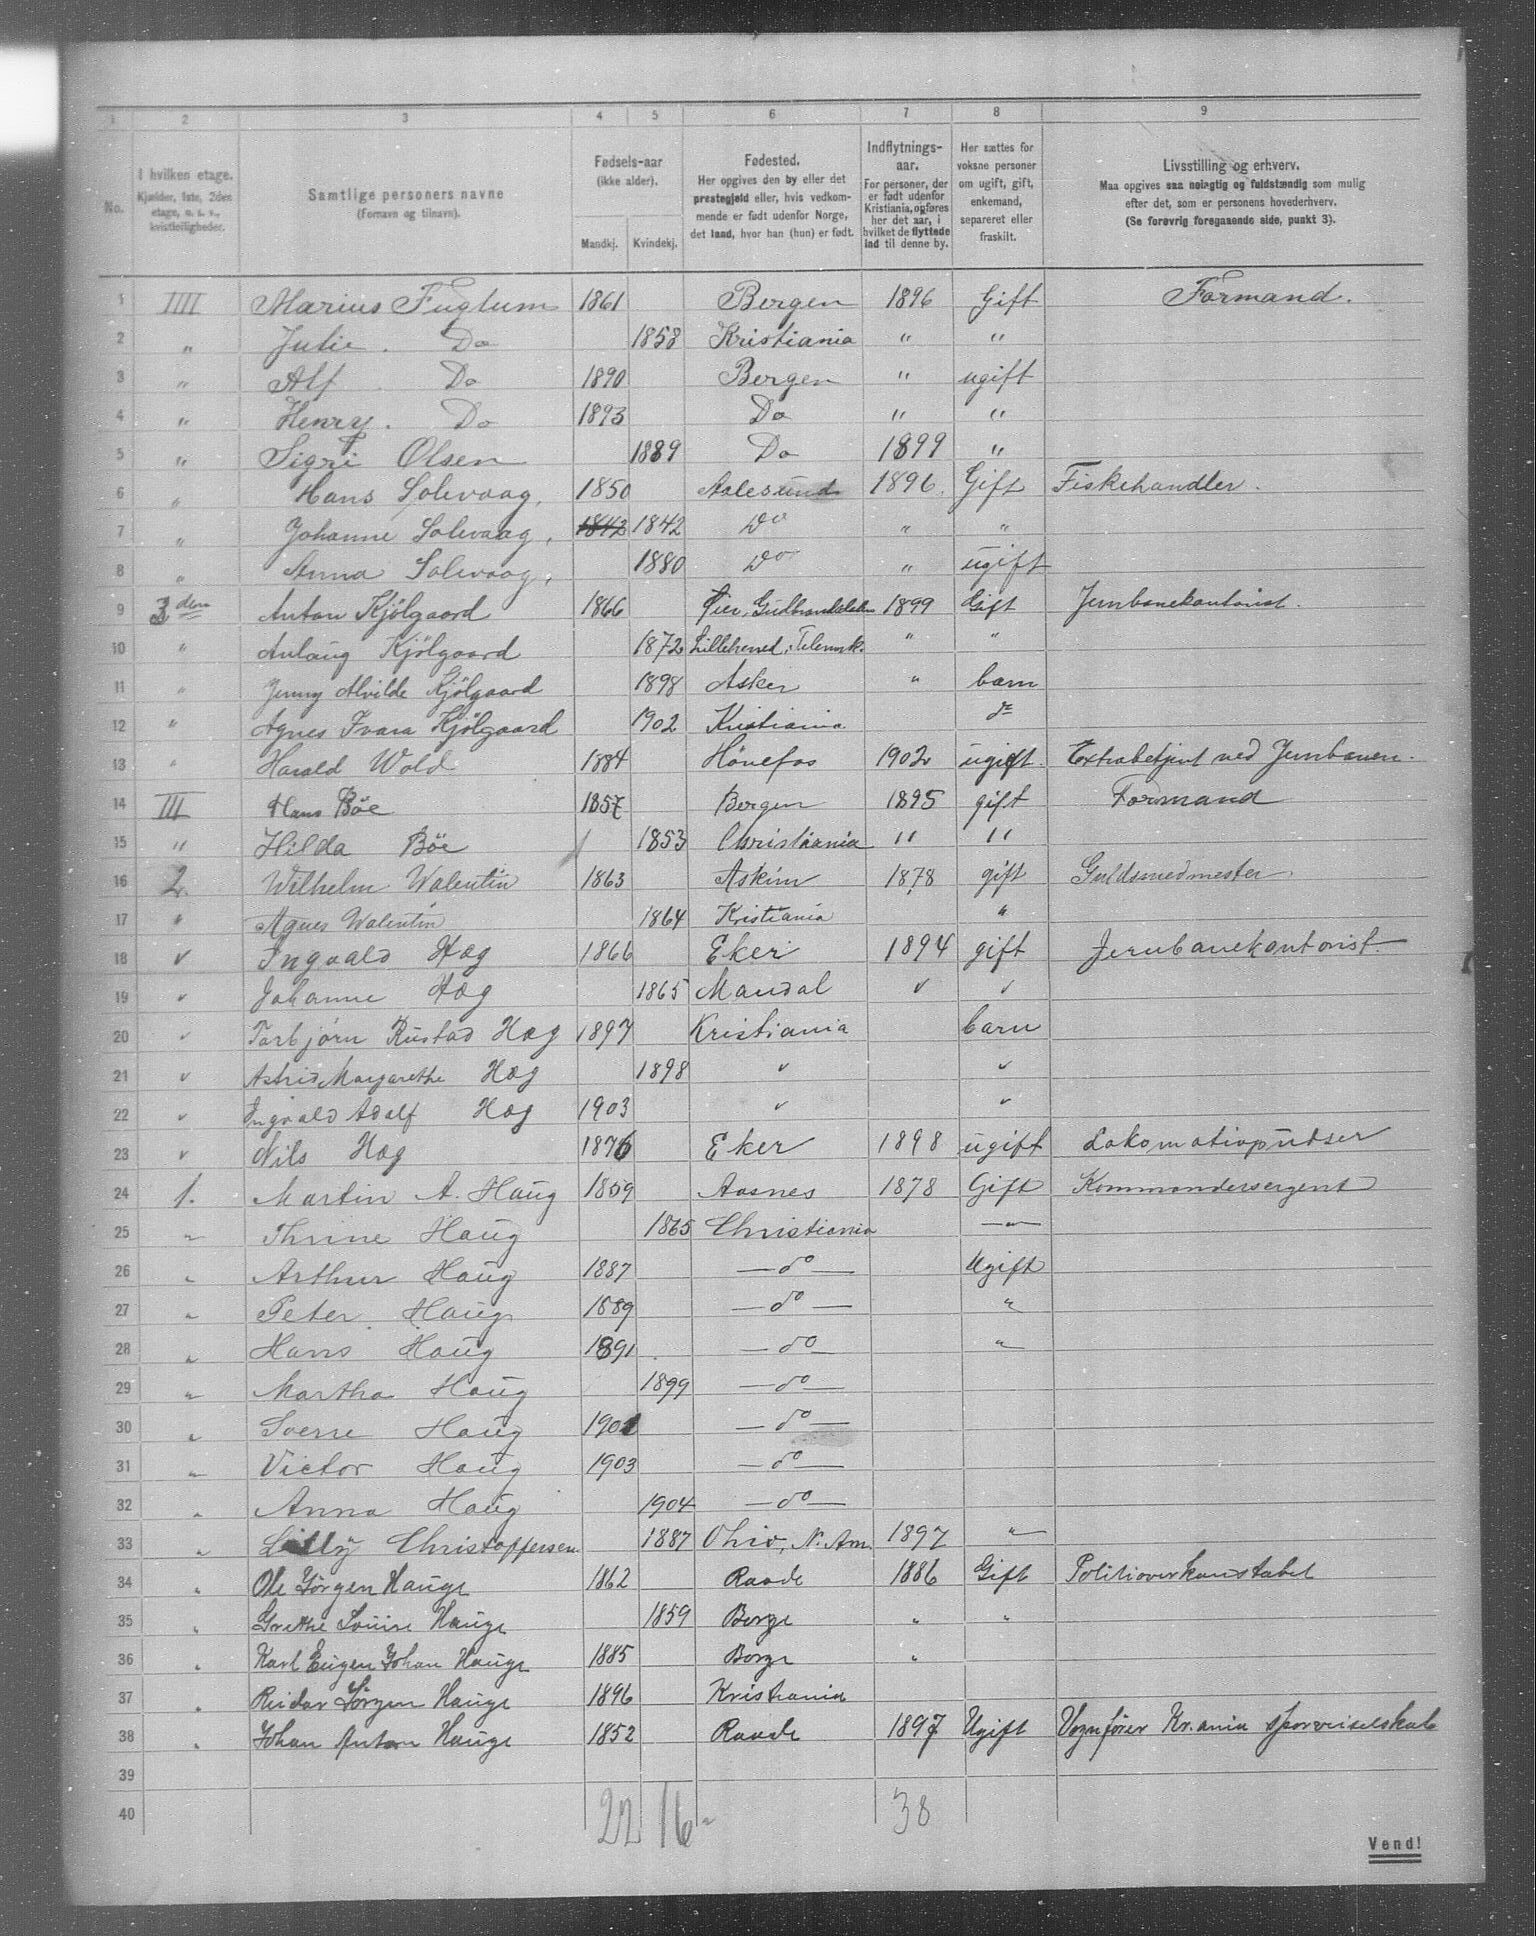 1 2 3 4 5 6 7 8 9
No. I hvilken etage. Kjælder, 1ste, 2den etage, o. s. v., kvistleiligheder. Samtlige personers navne (Fornavn og tilnavn). Fødsels-aar (ikke alder). Mandkj. Kvindekj. Fødested. Her opgives den by eller det præstegjeld eller, hvis vedkommende er født udenfor Norge, det land, hvor han (hun) er født. Indflytnings-aar. For personer, der er født udenfor Kristiania, opføres her det aar, i hvilket de flyttede ind til denne by. Her sættes for voksne personer om ugift, gift, enkemand, separeret eller fraskilt. Livsstilling og erhverv. Maa opgives saa nøiagtig og fuldstændig som mulig efter det, som er personens hovederhverv. (Se forøvrig foregaaende side, punkt 3).
1 IIII Marius Fuglum 1861 Bergen 1896 Gift Formand.
2 " Julie. Do 1858 Kristiania " "
3 " Alf Do 1890 Bergen " ugift
4 " Henry. Do 1893 Do " "
5 " Sigri Olsen 1889 Do 1899 "
6 " Hans Solevaag, 1850 Aalesund 1896. Gift Fiskehandler.
7 " Johanne Solevaag, 1842 1842 Do " "
8 " Anna Solevaag, 1880 Do " ugift
9 3den Anton Kjölgaard 1866 Øier, Gudbrandsdalen 1899 Gift Jernbanekontorist.
10 " Aulaug Kjölgaard 1872 Telemrk. " "
11 " Jenny Alvilde Kjölgaard 1898 Asker " barn
12 " Agnes Ivara Kjölgaard 1902 Kristiania do
13 " Harald Wold 1884 Hönefos 1902 ugift. Extrabetjent ved Jernbanen.
14 III Hans Böe 1857 Bergen 1895 gift Formand
15 " Hilda Böe 1853 Christiania " "
16 2. Wilhelm Walentin 1863 Askim 1878 gift Guldsmedmester
17 " Agnes Walentin 1864 Kristiania "
18 v Ingvald Hæg 1866 Eker 1894 gift Jernbanekontorist.
19 v Johanne Hæg 1865 Mandal v v
20 v Torbjörn Rustad Hæg 1897 Kristiania barn
21 v Astrid Margarethe Hæg 1898 v v
22 v Ingvald Adolf Hæg 1903 v v
23 v Nils Hæg 1876 Eker 1898 ugift Lokomotivpudser
24 1. Martin A. Haug 1859 Aasnes 1878 Gift Kommandersergent
25 " Thrine Haug 1865 Christiania —"—
26 " Arthur Haug 1887 — do — Ugift
27 " Peter Haug 1889 — do — "
28 " Hans Haug 1891 — do — "
29 " Martha Haug 1899 — do —
30 " Sverre Haug 1901 — do —
31 " Victor Haug 1903 — do —
32 " Anna Haug 1904 — do —
33 " Lilly Christoffersen 1887 Ohio, N. Am. 1897 "
34 " Ole Jörgen Hauge 1862 Raade 1886 Gift Politioverkonstabel
35 " Grethe Louise Hauge 1859 Borge " "
36 " Karl Eugen Johan Hauge 1885 Borge "
37 " Reidar Jörgen Hauge 1896 Kristiania
38 " Johan Anton Hauge 1852 Raade 1897 Ugift Vognfører Kr.ania sporveiselskab
39
40 22 16 38
Vend!